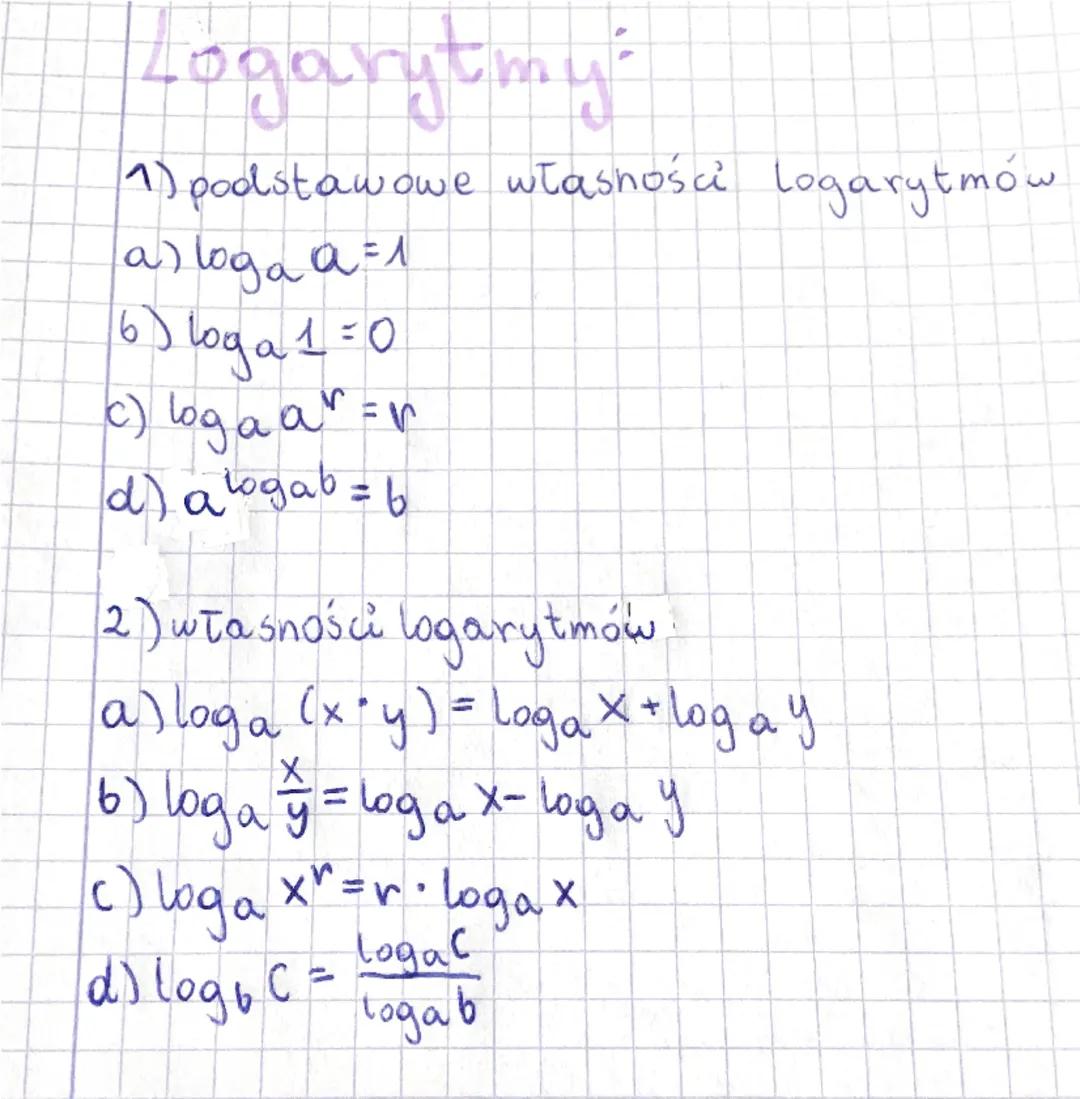 Logarytmy:
1) podstawowe własności logarytmów
a) logₐ a = 1
b) logₐ 1 = 0
c) logₐ aʳ = r
d) a^(logₐb) = b
2) własności logarytmów
a) logₐ (x · y) = logₐ x + logₐ y
b) logₐ x/y = logₐ x - logₐ y
c) logₐ xʳ = r · logₐ x
d) log_b c = logₐc / logₐb